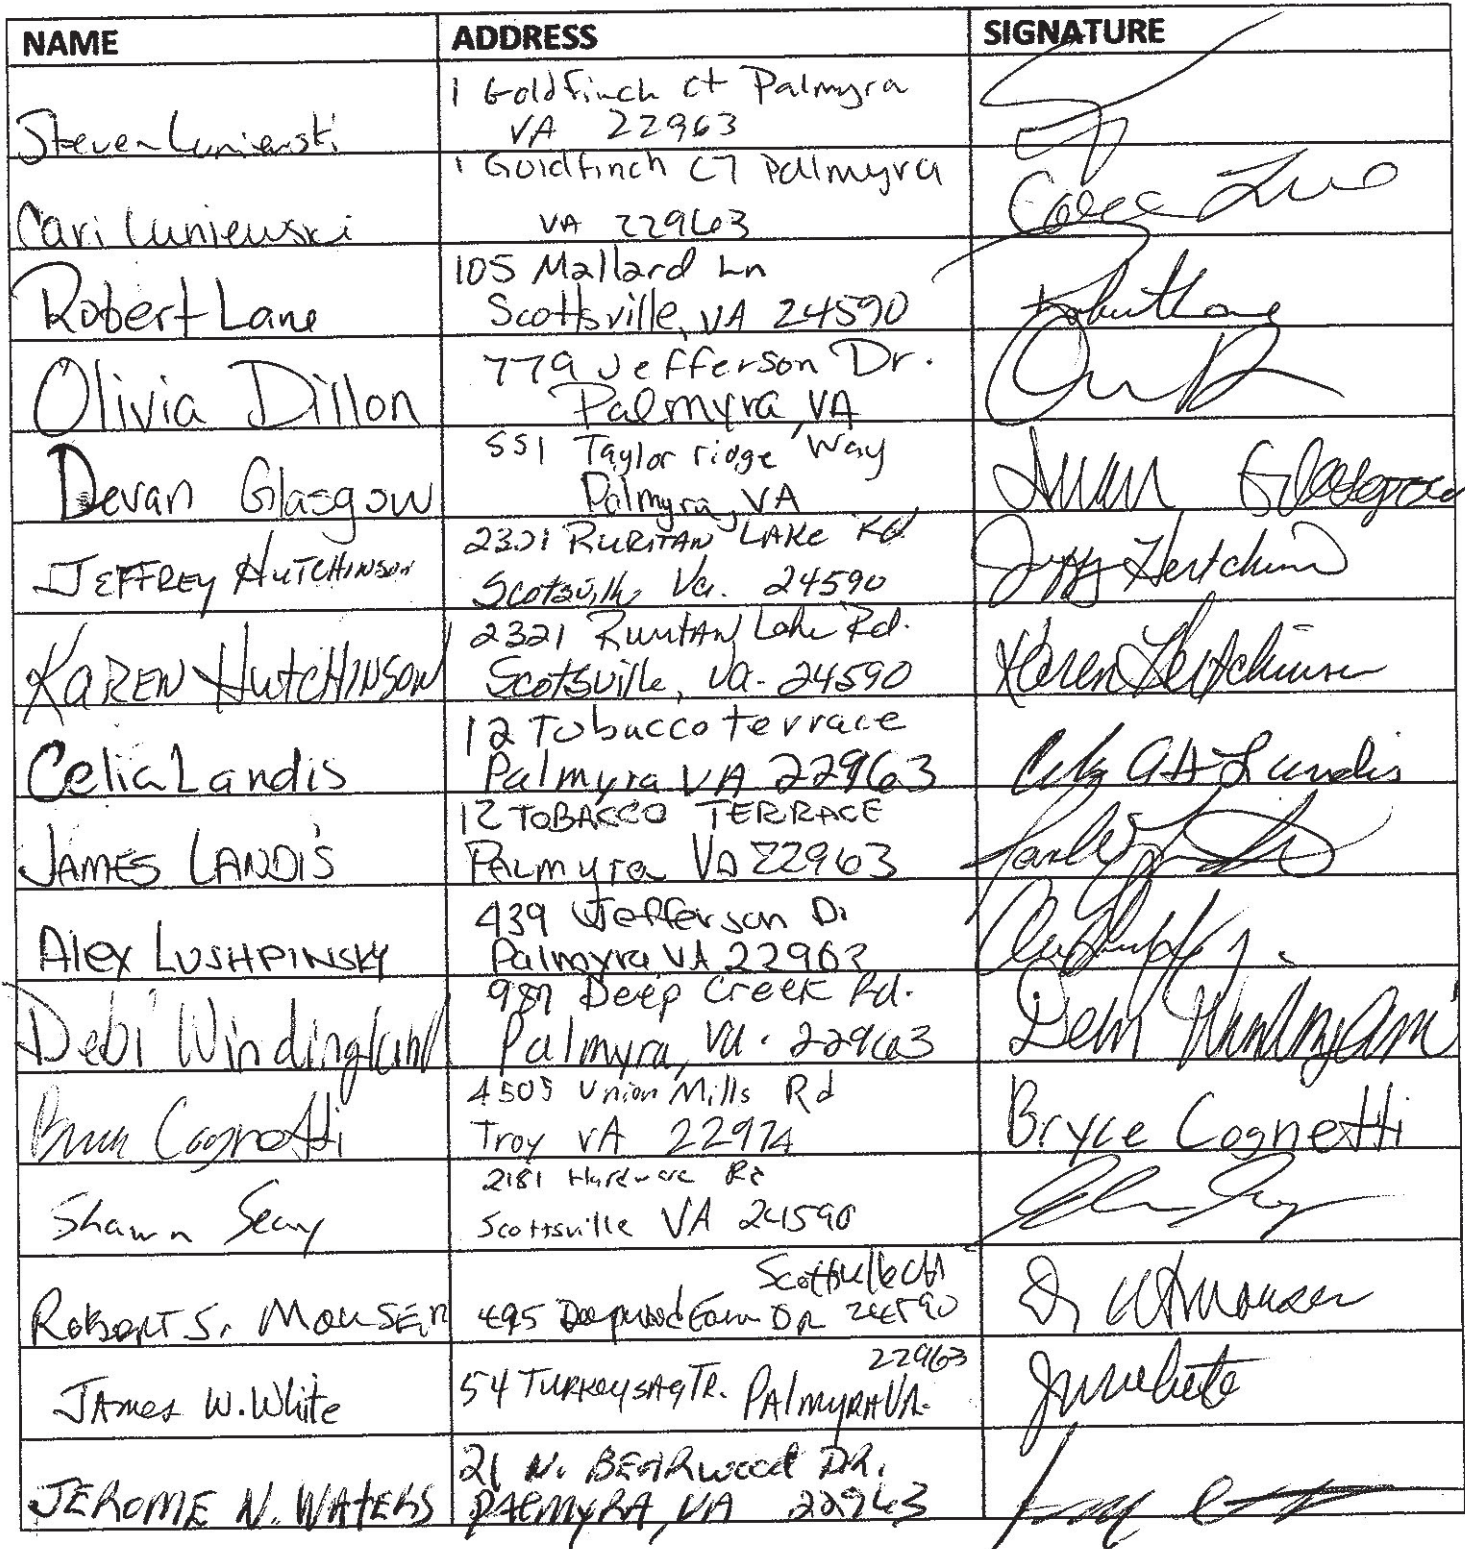 NAME ADDRESS SIGNATURE
Steven Luniewski
1 Goldfinch Ct Palmyra
VA 22963
Cari Luniewski
1 Goldfinch CT Palmyra
VA 22963
Robert Lane
105 Mallard Ln
Scottsville, VA 24590
Robert Lane
Olivia Dillon
779 Jefferson Dr.
Palmyra, VA
Devan Glasgow
551 Taylor ridge Way
Palmyra, VA
Devan Glasgow
JEFFREY HUTCHINSON
2321 RURITAN LAKE Rd
Scotsville Va. 24590
Jeffrey Hutchinson
KAREN HUTCHINSON
2321 Ruritan Lake Rd.
Scotsville, Va. 24590
Karen Hutchinson
Celia Landis
12 Tobacco terrace
Palmyra VA 22963
Landis
JAMES LANDIS
12 TOBACCO TERRACE
PALMyra VA 22963
Alex LUSHPINSKY
439 Jefferson Dr
Palmyra VA 22963
Debi Windingland
987 Deep Creek Rd.
Palmyra, Va. 22963
Cognetti
4505 Union Mills Rd
Troy VA 22974
Bryce Cognetti
Shawn Seay
2181 Hardware Rd
Scottsville VA 24590
ROBERT S. MOUSER
Scottsville VA
495 Deepwood Farm DR 24590
Mouser
JAMES W. White
22963
54 TURKEYSAG TR. PALMYRA VA.
JWWhite
JEROME N. WATERS
21 N. BEARWOOD DR.
PALMYRA, VA 22963